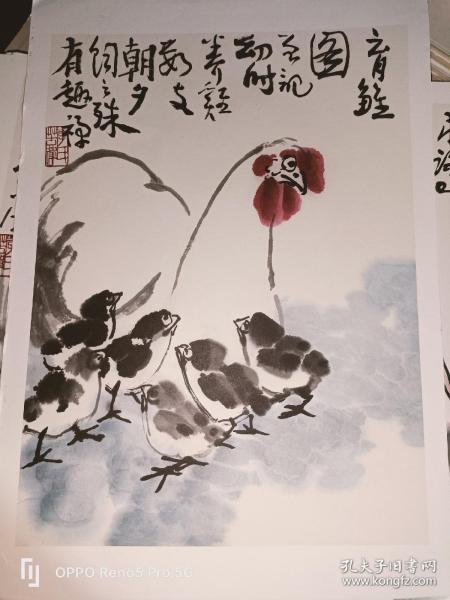 育雏
图
昔记
幼时
养鸡
数支
朝夕
饲之殊
有趣禅
OPPO Reno5 Pro 5G
孔夫子旧书网
www.kongfz.com